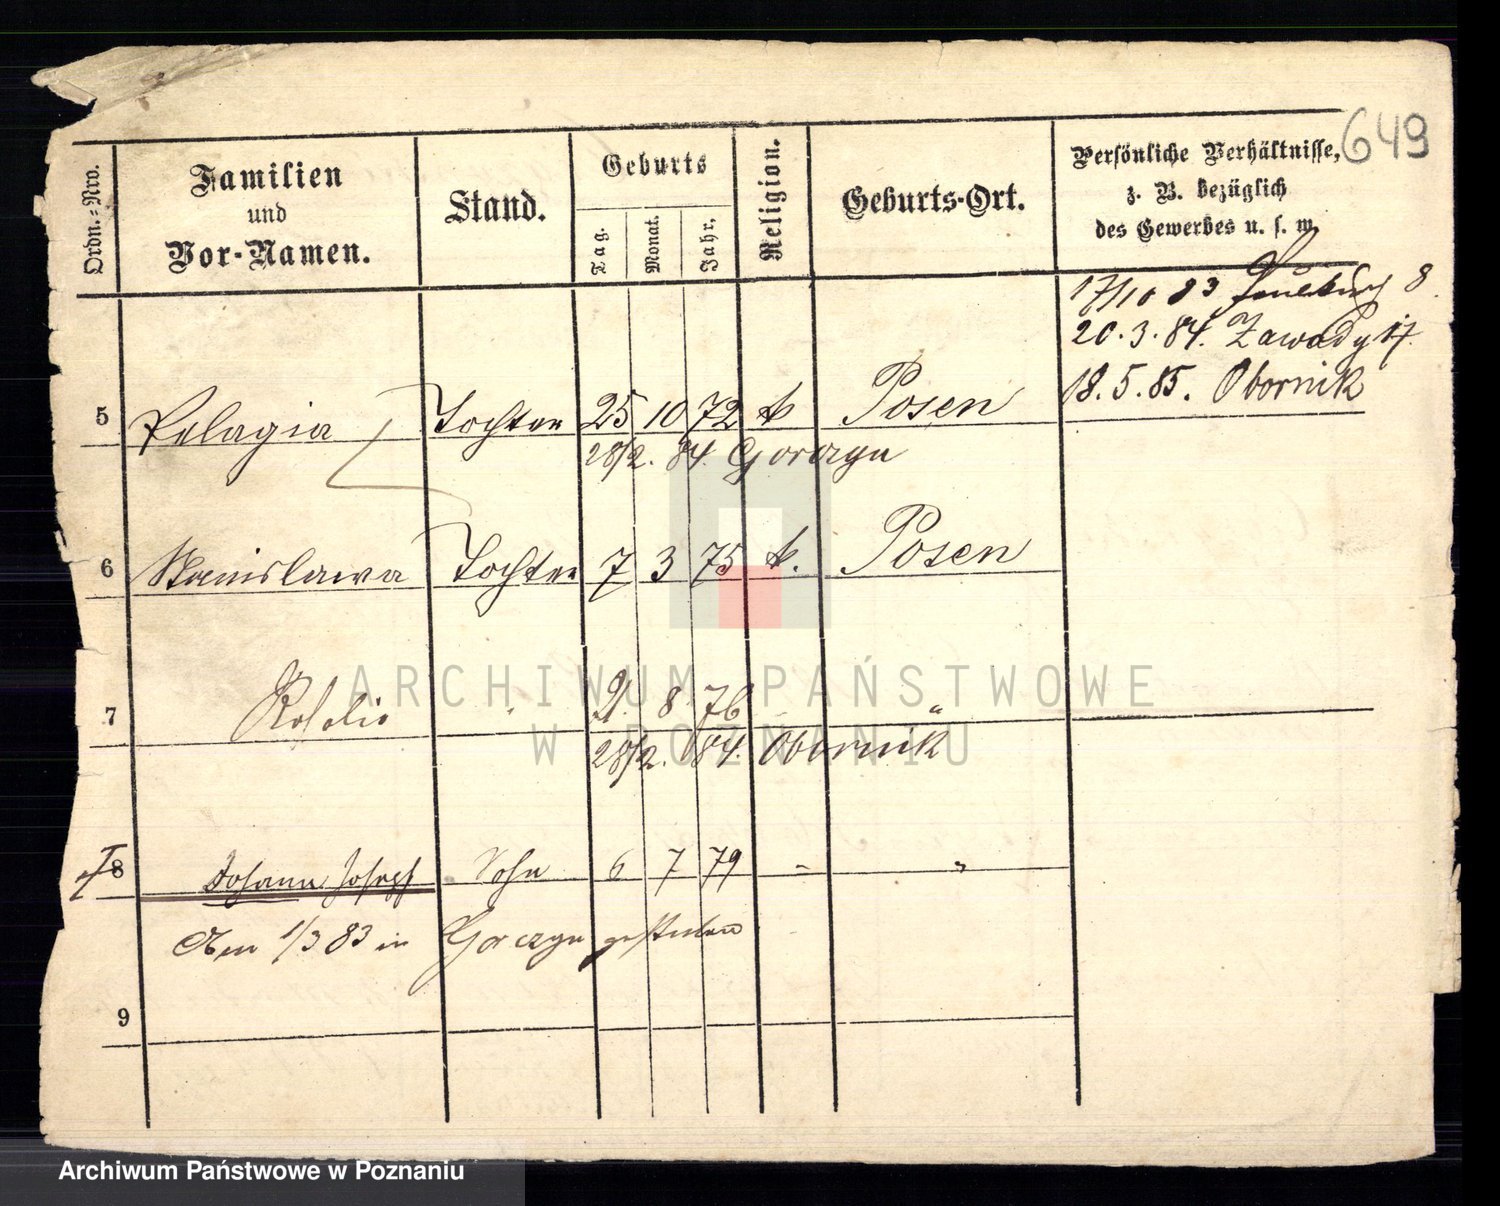 649
Ordn.-Nro.
Familien
und
Vor-Namen.
Stand.
Geburts
Tag.
Monat.
Jahr.
Religion.
Geburts-Ort.
Persönliche Verhältnisse,
z. B. bezüglich
des Gewerbes u. s. w.
17/10 83 8
20.3.84. Zawady 17.
18.5.85. Obornik
5 Pelagia Tochter 25 10 72 k Posen
28/2. 84. Gorczyn
6 Stanislawa Tochter 7 3 75 k. Posen
7 Rosalie " 21. 8 76 "
28/2. 84. Obornik
8 Johann Josef Sohn 6 7 79 - "
Am 1/3 83 in Gorczyn gestorben
9
ARCHIWUM PAŃSTWOWE
W POZNANIU
Archiwum Państwowe w Poznaniu